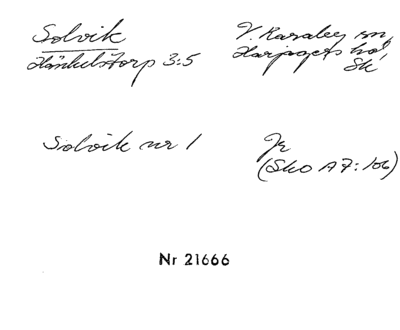 Solvik
Hänkelstorp 3:5
V. Karaby sn,
Harjagers hd,
Sk
Solvik nr 1
Jr
(Sko A7:106)
Nr 21666